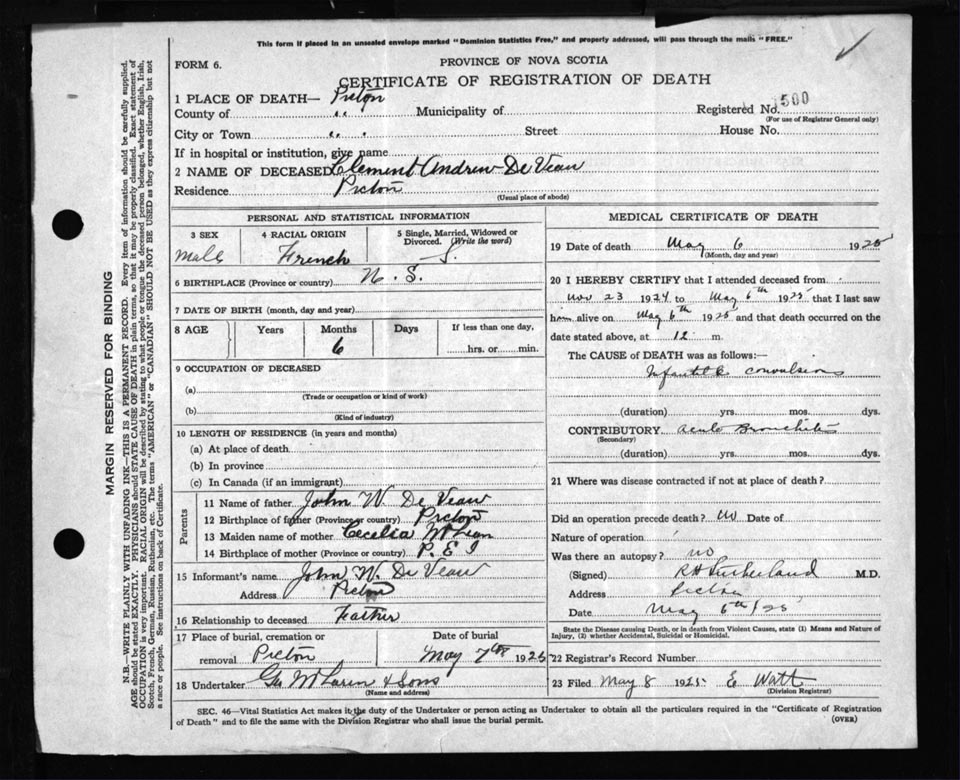 This form if placed in an unsealed envelope marked "Dominion Statistics Free," and properly addressed, will pass through the mails "FREE."
FORM 6.
PROVINCE OF NOVA SCOTIA
CERTIFICATE OF REGISTRATION OF DEATH
1 PLACE OF DEATH— Picton
County of " " Municipality of Registered No. 500
(For use of Registrar General only)
City or Town " " Street House No.
If in hospital or institution, give name
2 NAME OF DECEASED Clement Andrew De Veau
Residence Picton
(Usual place of abode)
PERSONAL AND STATISTICAL INFORMATION
3 SEX 4 RACIAL ORIGIN 5 Single, Married, Widowed or Divorced. (Write the word)
Male French S.
6 BIRTHPLACE (Province or country) N. S.
7 DATE OF BIRTH (month, day and year)
8 AGE Years Months Days If less than one day,
6 hrs. or min.
9 OCCUPATION OF DECEASED
(a)
(Trade or occupation or kind of work)
(b)
(Kind of industry)
10 LENGTH OF RESIDENCE (in years and months)
(a) At place of death
(b) In province
(c) In Canada (if an immigrant)
Parents
11 Name of father John W. De Veau
12 Birthplace of father (Province or country) Picton
13 Maiden name of mother Cecelia McLean
14 Birthplace of mother (Province or country) P. E I
15 Informant's name John W. De Veau
Address Picton
16 Relationship to deceased Father
17 Place of burial, cremation or Date of burial
removal Picton May 7th 1925
18 Undertaker Geo McLaren & Sons
(Name and address)
MEDICAL CERTIFICATE OF DEATH
19 Date of death May 6 1925
(Month, day and year)
20 I HEREBY CERTIFY that I attended deceased from
Nov 23 1924 to May 6th 1925 that I last saw
him alive on May 6th 1925 and that death occurred on the
date stated above, at 12 m.
The CAUSE of DEATH was as follows:—
Infantile convulsions
(duration) yrs. mos. dys.
CONTRIBUTORY acute Bronchitis
(Secondary)
(duration) yrs. mos. dys.
21 Where was disease contracted if not at place of death?
Did an operation precede death? no Date of
Nature of operation
Was there an autopsy? no
(Signed) R H Sutherland M.D.
Address Picton
Date May 6th/25
State the Disease causing Death, or in death from Violent Causes, state (1) Means and Nature of
Injury, (2) whether Accidental, Suicidal or Homicidal.
22 Registrar's Record Number
23 Filed May 8 1925 E Watt
(Division Registrar)
SEC. 46—Vital Statistics Act makes it the duty of the Undertaker or person acting as Undertaker to obtain all the particulars required in the "Certificate of Registration
of Death" and to file the same with the Division Registrar who shall issue the burial permit. (OVER)
MARGIN RESERVED FOR BINDING
N.B.—WRITE PLAINLY WITH UNFADING INK—THIS IS A PERMANENT RECORD. Every item of information should be carefully supplied.
AGE should be stated EXACTLY. PHYSICIANS should STATE CAUSE OF DEATH in plain terms, so that it may be properly classified. Exact statement of
OCCUPATION is very important. RACIAL ORIGIN will be described by stating to what people or tongue the deceased person belonged, whether English, Irish,
Scotch, French, German, Russian, Ruthenian, etc. The terms "AMERICAN" or "CANADIAN" SHOULD NOT BE USED as they express citizenship but not
a race or people. See instructions on back of Certificate.